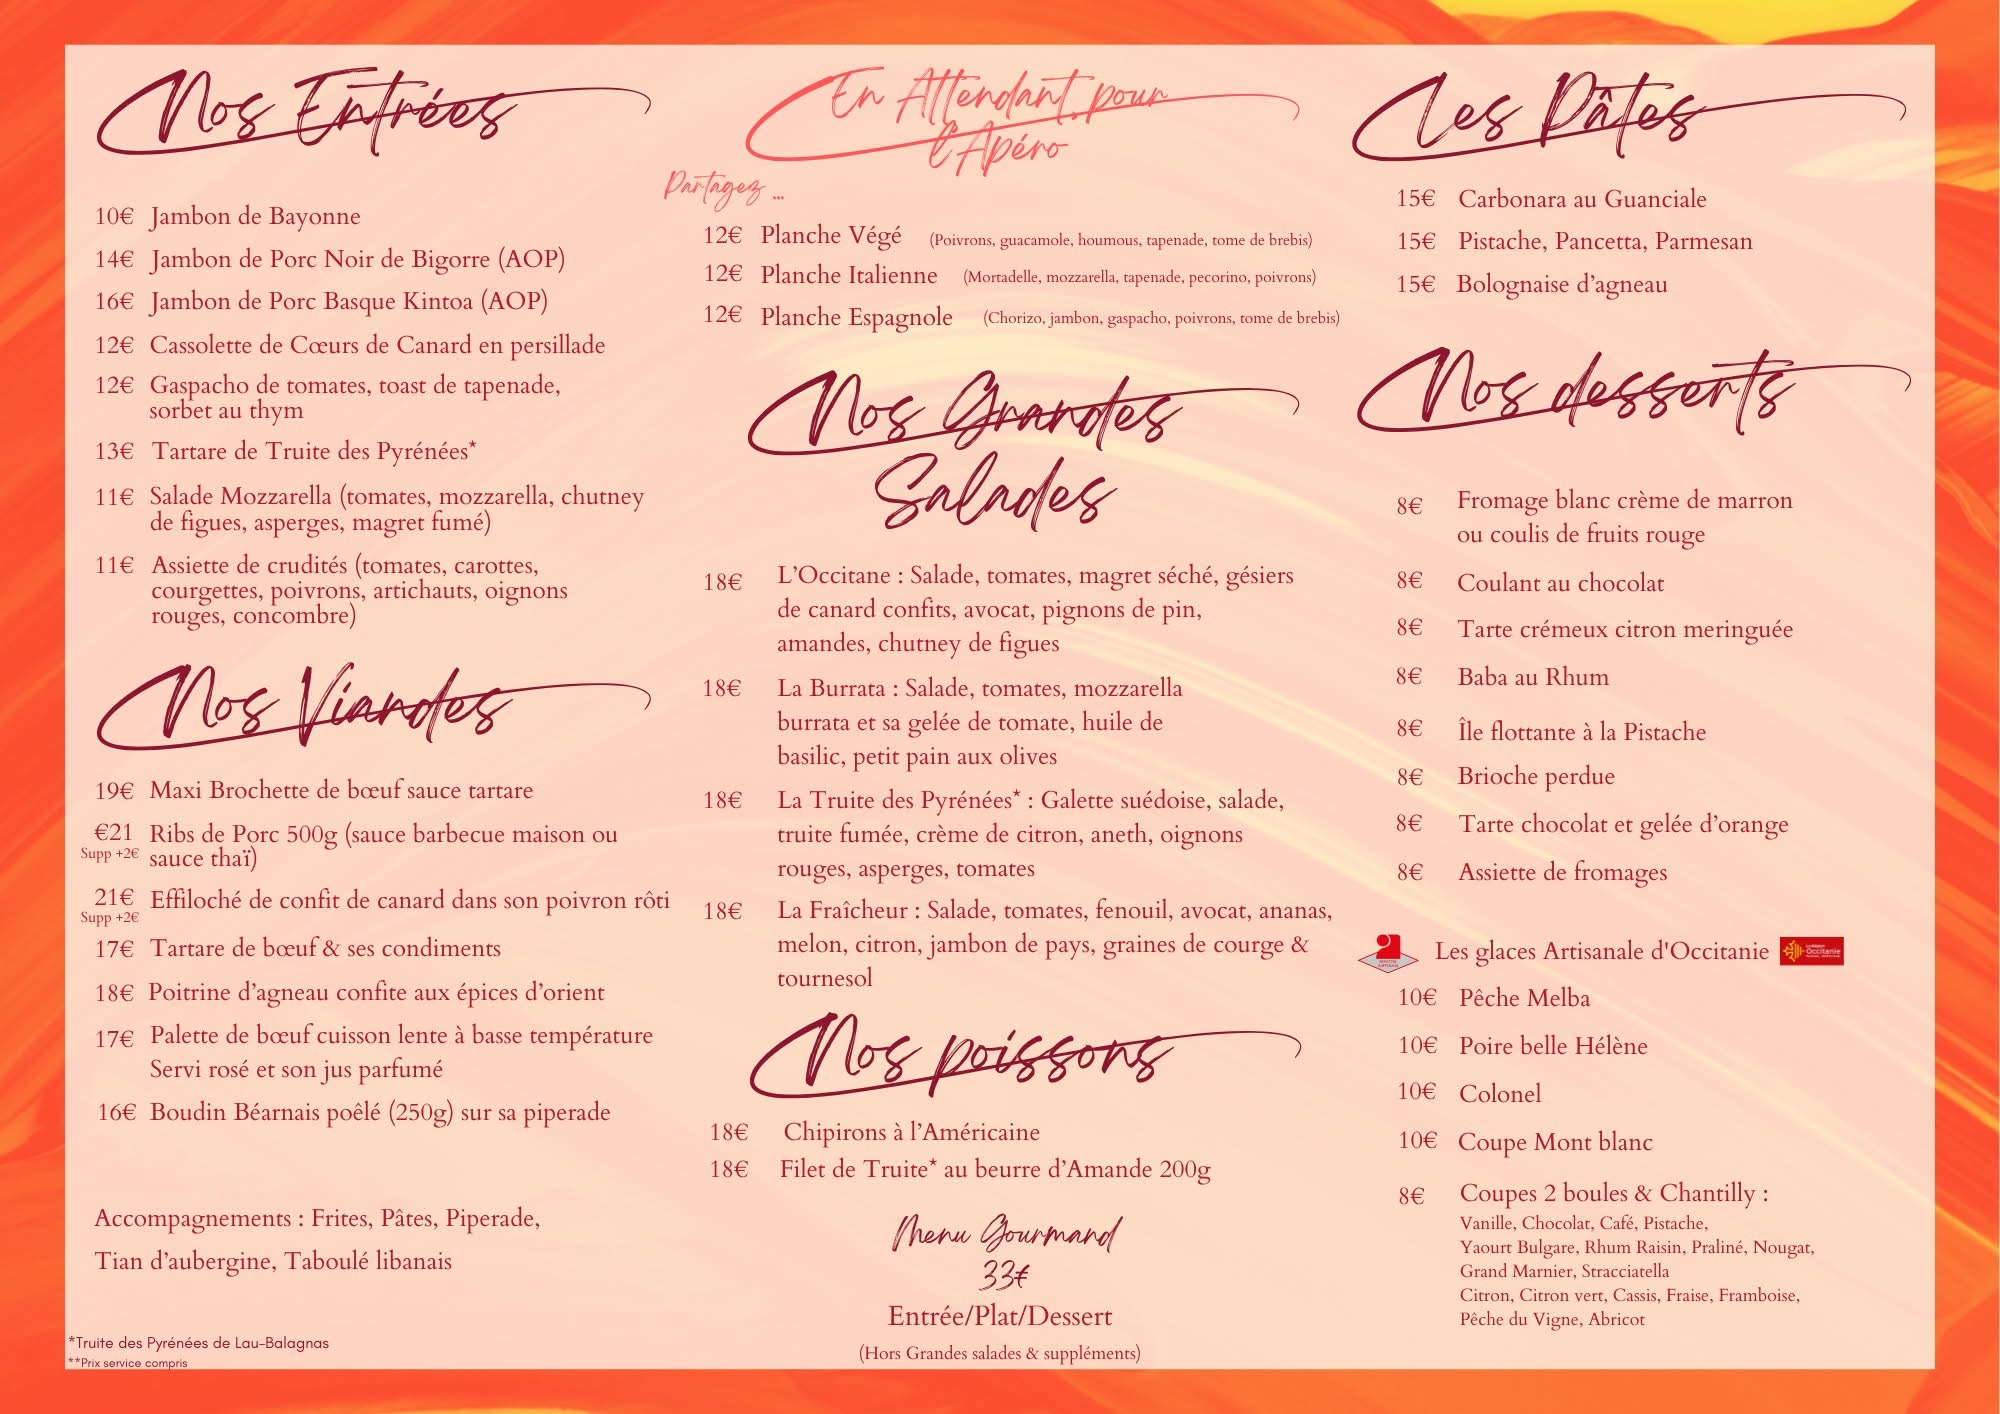 Nos Entrées
10€ Jambon de Bayonne
14€ Jambon de Porc Noir de Bigorre (AOP)
16€ Jambon de Porc Basque Kintoa (AOP)
12€ Cassolette de Cœurs de Canard en persillade
12€ Gaspacho de tomates, toast de tapenade,
sorbet au thym
13€ Tartare de Truite des Pyrénées*
11€ Salade Mozzarella (tomates, mozzarella, chutney
de figues, asperges, magret fumé)
11€ Assiette de crudités (tomates, carottes,
courgettes, poivrons, artichauts, oignons
rouges, concombre)
Nos Viandes
19€ Maxi Brochette de bœuf sauce tartare
€21 Ribs de Porc 500g (sauce barbecue maison ou
Supp +2€ sauce thaï)
21€ Effiloché de confit de canard dans son poivron rôti
Supp +2€
17€ Tartare de bœuf & ses condiments
18€ Poitrine d’agneau confite aux épices d’orient
17€ Palette de bœuf cuisson lente à basse température
Servi rosé et son jus parfumé
16€ Boudin Béarnais poêlé (250g) sur sa piperade
Accompagnements : Frites, Pâtes, Piperade,
Tian d’aubergine, Taboulé libanais
*Truite des Pyrénées de Lau-Balagnas
**Prix service compris
En Attendant, pour
l'Apéro
Partagez ...
12€ Planche Végé (Poivrons, guacamole, houmous, tapenade, tome de brebis)
12€ Planche Italienne (Mortadelle, mozzarella, tapenade, pecorino, poivrons)
12€ Planche Espagnole (Chorizo, jambon, gaspacho, poivrons, tome de brebis)
Nos Grandes
Salades
18€ L’Occitane : Salade, tomates, magret séché, gésiers
de canard confits, avocat, pignons de pin,
amandes, chutney de figues
18€ La Burrata : Salade, tomates, mozzarella
burrata et sa gelée de tomate, huile de
basilic, petit pain aux olives
18€ La Truite des Pyrénées* : Galette suédoise, salade,
truite fumée, crème de citron, aneth, oignons
rouges, asperges, tomates
18€ La Fraîcheur : Salade, tomates, fenouil, avocat, ananas,
melon, citron, jambon de pays, graines de courge &
tournesol
Nos poissons
18€ Chipirons à l’Américaine
18€ Filet de Truite* au beurre d’Amande 200g
Menu Gourmand
33€
Entrée/Plat/Dessert
(Hors Grandes salades & suppléments)
Les Pâtes
15€ Carbonara au Guanciale
15€ Pistache, Pancetta, Parmesan
15€ Bolognaise d’agneau
Nos desserts
8€ Fromage blanc crème de marron
ou coulis de fruits rouge
8€ Coulant au chocolat
8€ Tarte crémeux citron meringuée
8€ Baba au Rhum
8€ Île flottante à la Pistache
8€ Brioche perdue
8€ Tarte chocolat et gelée d’orange
8€ Assiette de fromages
Les glaces Artisanale d'Occitanie
Occitanie
10€ Pêche Melba
10€ Poire belle Hélène
10€ Colonel
10€ Coupe Mont blanc
8€ Coupes 2 boules & Chantilly :
Vanille, Chocolat, Café, Pistache,
Yaourt Bulgare, Rhum Raisin, Praliné, Nougat,
Grand Marnier, Stracciatella
Citron, Citron vert, Cassis, Fraise, Framboise,
Pêche du Vigne, Abricot